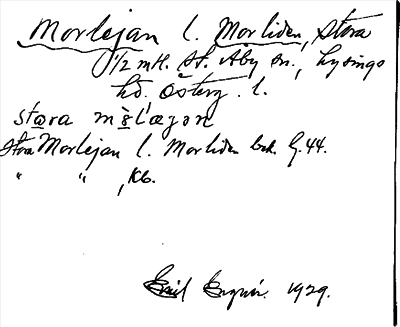 Morlejan l. Morliden, Stora
1/2 mtl. St. Åby sn., Lysings
hd. Österg. l.
stora mo̤ḷæjan
Stora Morlejan l. Morliden G. 44.
" " , Kb.
Emil 1929.